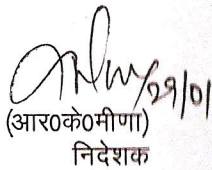 29/01
(आर0के0मीणा)
निदेशक